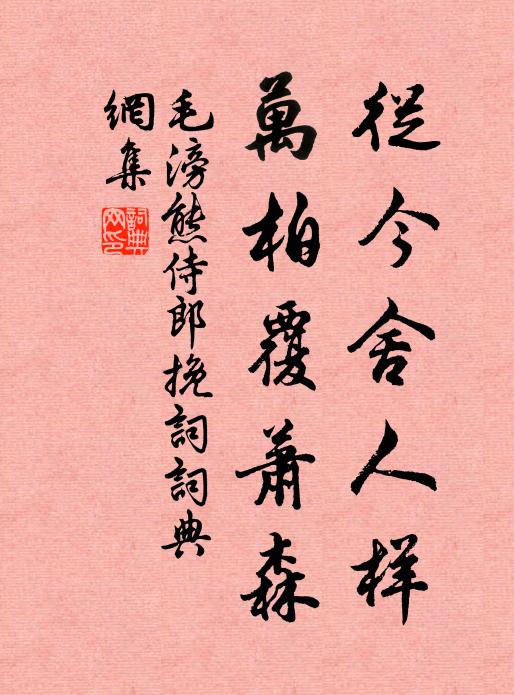 從今舍人样
萬柏覆蕭森
毛滂熊侍郎挽詞詞典
網集
詞典
网印